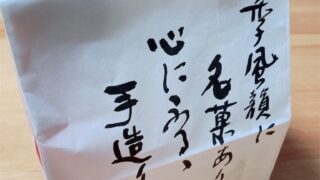 季風韻に
名菓あり
心にふるゝ
手造り